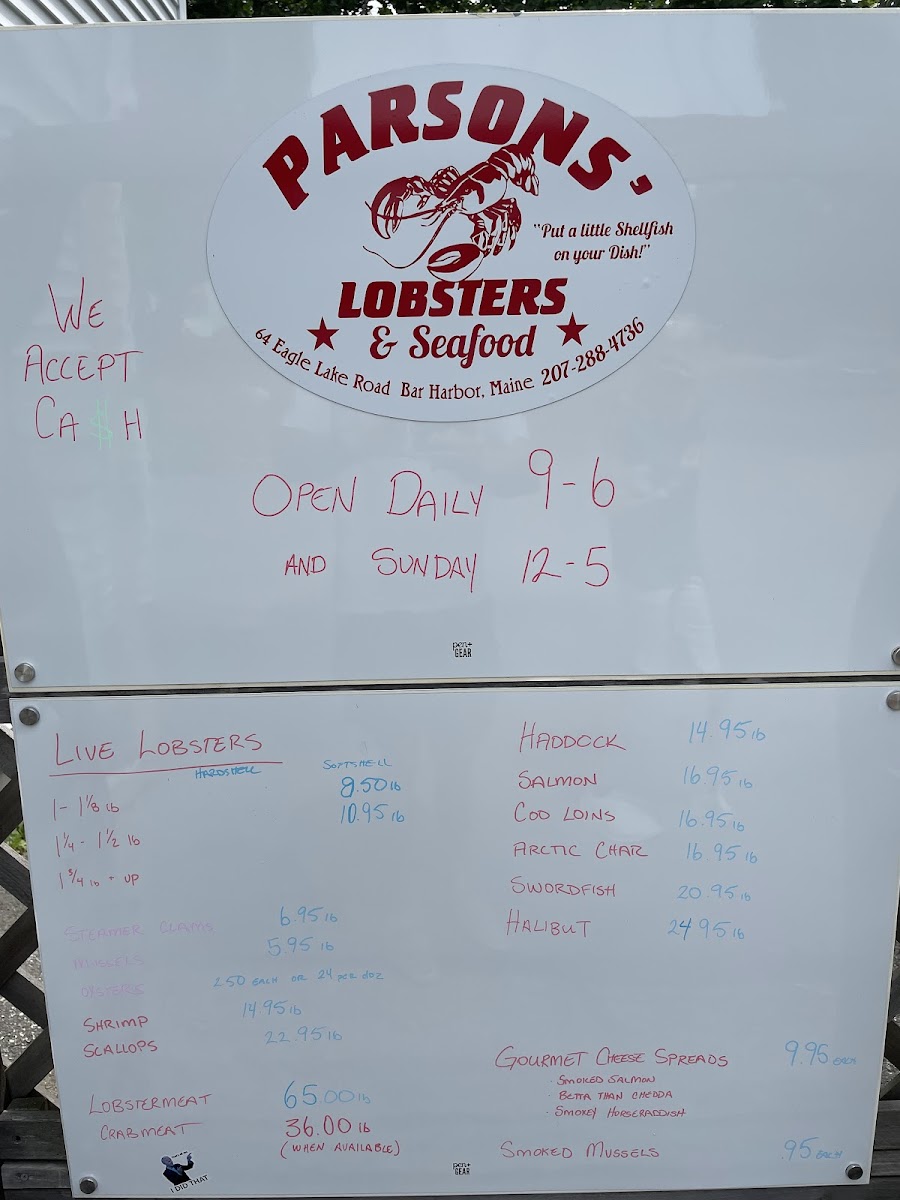 PARSONS'
"Put a little Shellfish
on your Dish!"
LOBSTERS
& Seafood
64 Eagle Lake Road Bar Harbor, Maine 207-288-4736
WE
ACCEPT
CA$H
OPEN DAILY 9-6
AND SUNDAY 12-5
pen+
GEAR
LIVE LOBSTERS
HARDSHELL SOFTSHELL
1 - 1 1/8 lb 9.50 lb
1 1/4 - 1 1/2 lb 10.95 lb
1 3/4 lb + UP
STEAMER CLAMS 6.95 lb
MUSSELS 5.95 lb
OYSTERS 2.50 EACH OR 24 per doz
SHRIMP 14.95 lb
SCALLOPS 22.95 lb
LOBSTERMEAT 65.00 lb
CRABMEAT 36.00 lb
(WHEN AVAILABLE)
I DID THAT
HADDOCK 14.95 lb
SALMON 16.95 lb
COD LOINS 16.95 lb
ARCTIC CHAR 16.95 lb
SWORDFISH 20.95 lb
HALIBUT 24.95 lb
GOURMET CHEESE SPREADS 9.95 EACH
· SMOKED SALMON
· BETTA THAN CHEDDA
· SMOKEY HORSERADDISH
SMOKED MUSSELS .95 EACH
pen+
GEAR